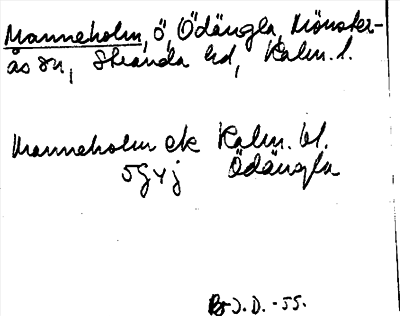 Manneholm, ö, Ödängla, Mönster-
ås sn, Stranda hd, Kalm. l.
Manneholm ek Kalm. bl.
5G4j Ödängla
J. D. -55.